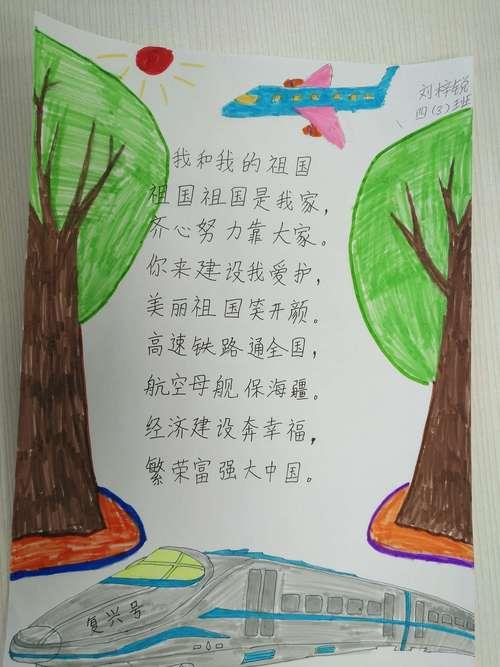 刘梓锐
四(3)班
我和我的祖国
祖国祖国是我家，
齐心努力靠大家。
你来建设我爱护，
美丽祖国笑开颜。
高速铁路通全国，
航空母舰保海疆。
经济建设奔幸福，
繁荣富强大中国。
复兴号